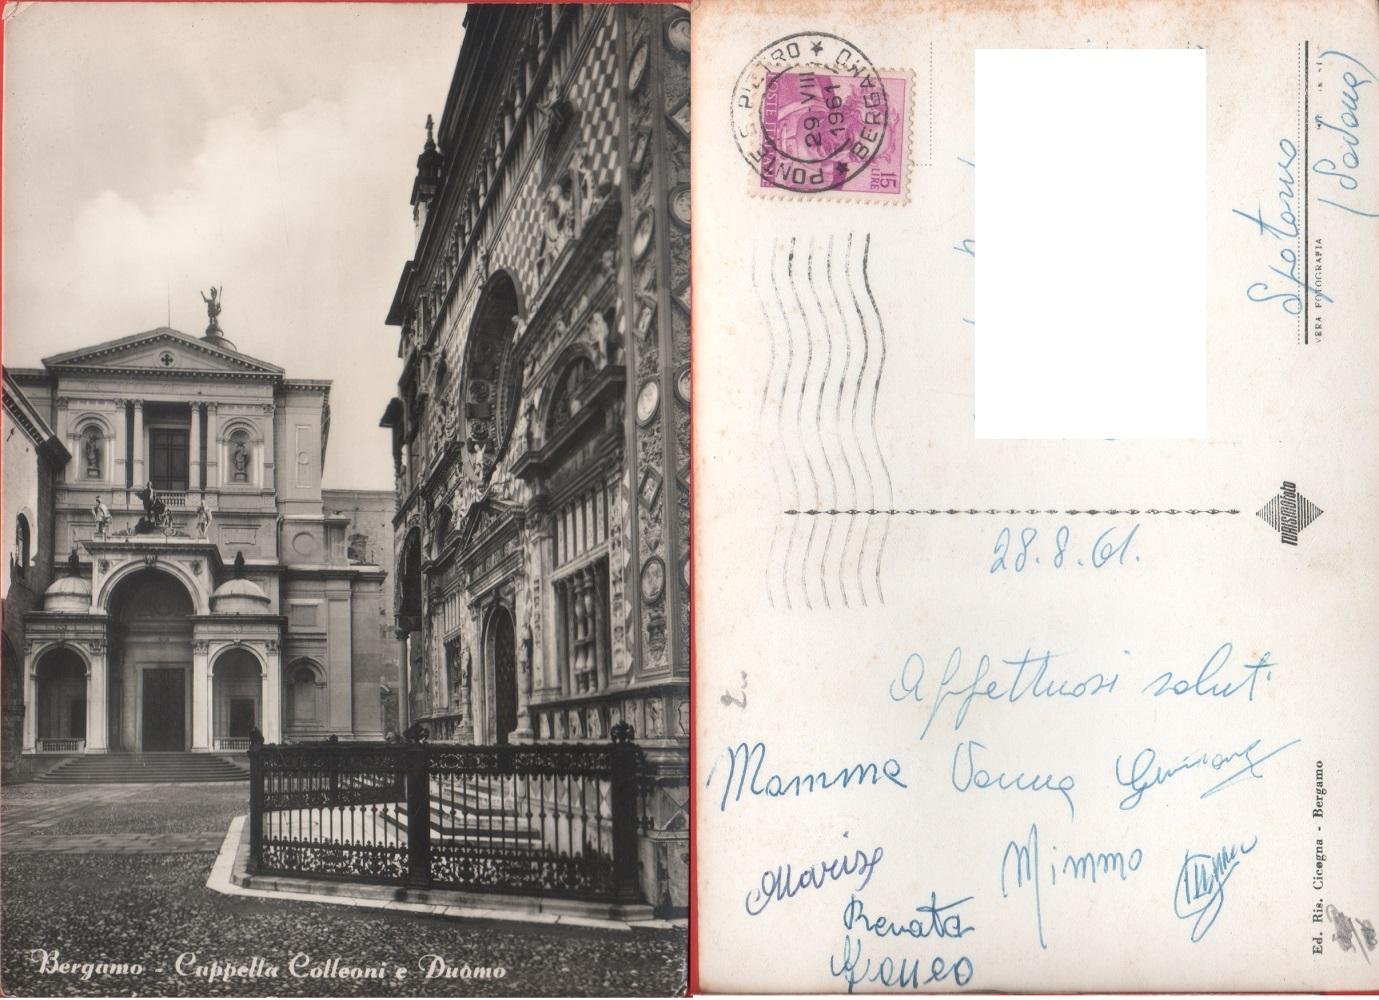 Bergamo - Cappella Colleoni e Duomo
PONTE S. PIETRO * BERGAMO *
29-VIII
1961
POSTE ITALIANE
LIRE
15
(Padova)
VERA FOTOGRAFIA
TURISMOfoto
28.8.61.
Affettuosi saluti
Mamma Vanna
Marisa
Mimmo
Renata
Ed. Ris. Cicogna - Bergamo